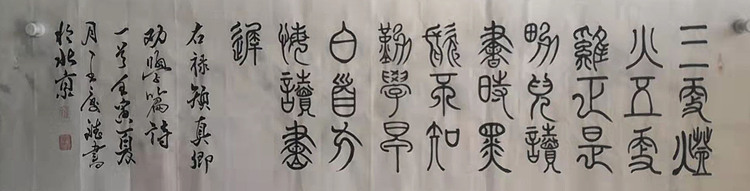 三更燈
火五更
雞正是
男兒讀
書時黑
髮不知
勤學早
白首方
悔讀書
遲
右祿顏真卿
勸學篇詩
一首壬寅夏
月書
於北京